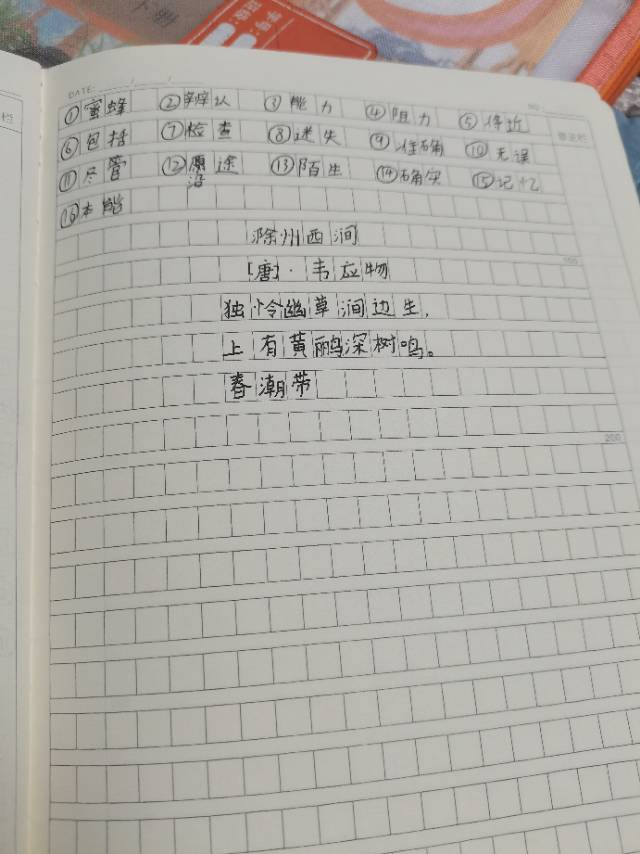 下册
DATE: / /
NO.
①蜜蜂 ②辨认 ③能力 ④阻力
⑥包括 ⑦检查 ⑧迷失 ⑩无误
⑪尽管 ⑫原途 ⑬陌生 ⑭确实 ⑮记忆
沿
⑯本能
滁州西涧
[唐]·韦应物
独怜幽草涧边生,
上有黄鹂深树鸣。
春潮带
100
200